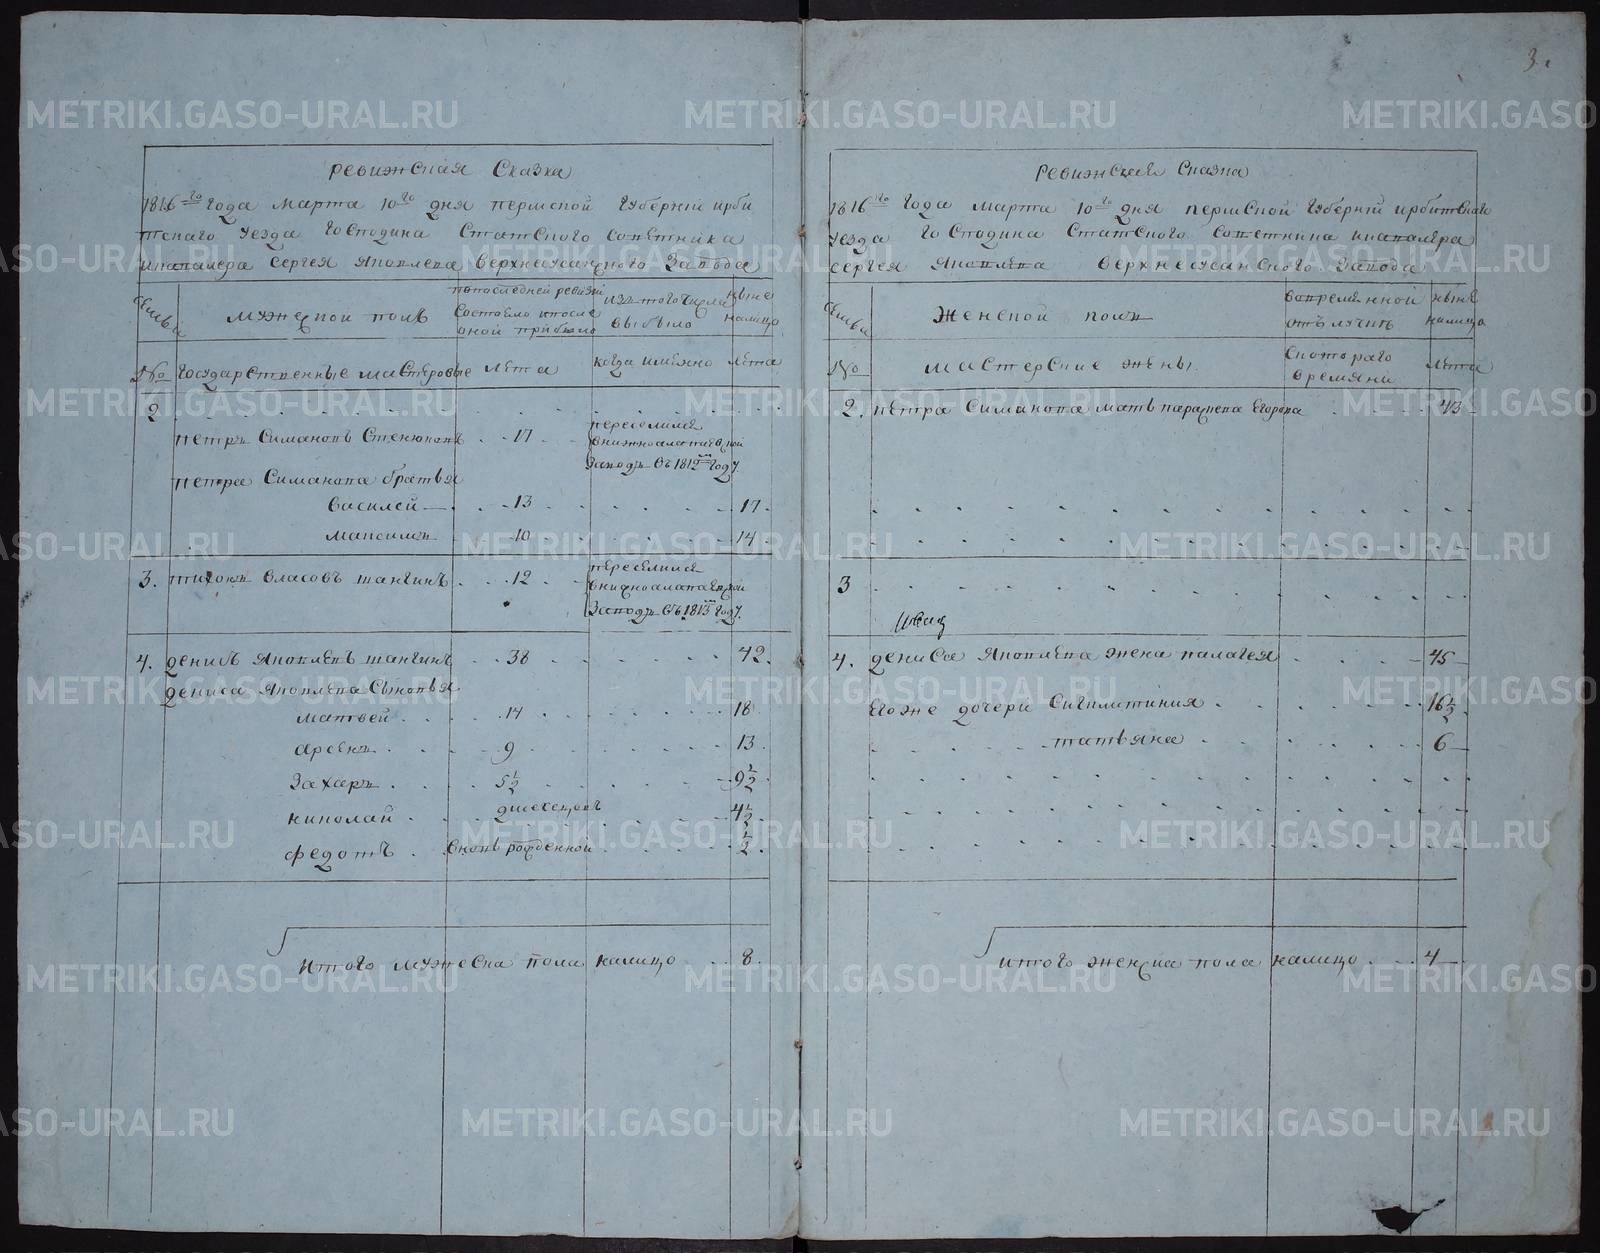 Ревижская Сказка
1816го года марта 10го дня пермской губернiи ирби
тскаго уезда господина статского советника
и кавалера Сергея Яковлева верхнесусанского завода
Семьи
Мужеской полъ
по последней ревизи
состояло и после
оной прибыло
из того числа
выбыло
ныне
налицо
№
государственные мастеровые
лета
когда имянно
лета
2
петръ Симановъ Стенюковъ 17
переселился
в нижноалапаевской
заводъ въ 1812м году.
петра Симанова братья
василей 13 17.
максимъ 10 14.
3. тихонъ власовъ шангинъ 12
переселился
в нижноалапаевской
заводъ въ 1815м году.
4. денисъ Яковлевъ шангинъ 38 42.
дениса Яковлева сыновья
матвей 14 18
9 13.
захаръ 5½ 9½
николай 4½
федотъ вновь рожденной ½.
итого мужеска пола налицо 8.
3.
Ревижская Сказка
1816го года марта 10го дня пермской губернiи ирбитскаго
уезда господина статского советника и кавалера
Сергея Яковлева верхнесусанского завода
Семьи
Женской полъ
во временной
отлучке
ныне
налицо
№
мастерские жены
с которого
времяни
лета
2. петра Симанова мать параскева Егорова 43
3
4. дениса Яковлева жена палагея 45
Его же дочери Сигклитикия 16½
татьяна 6
итого женска пола налицо 4
METRIKI.GASO-URAL.RU